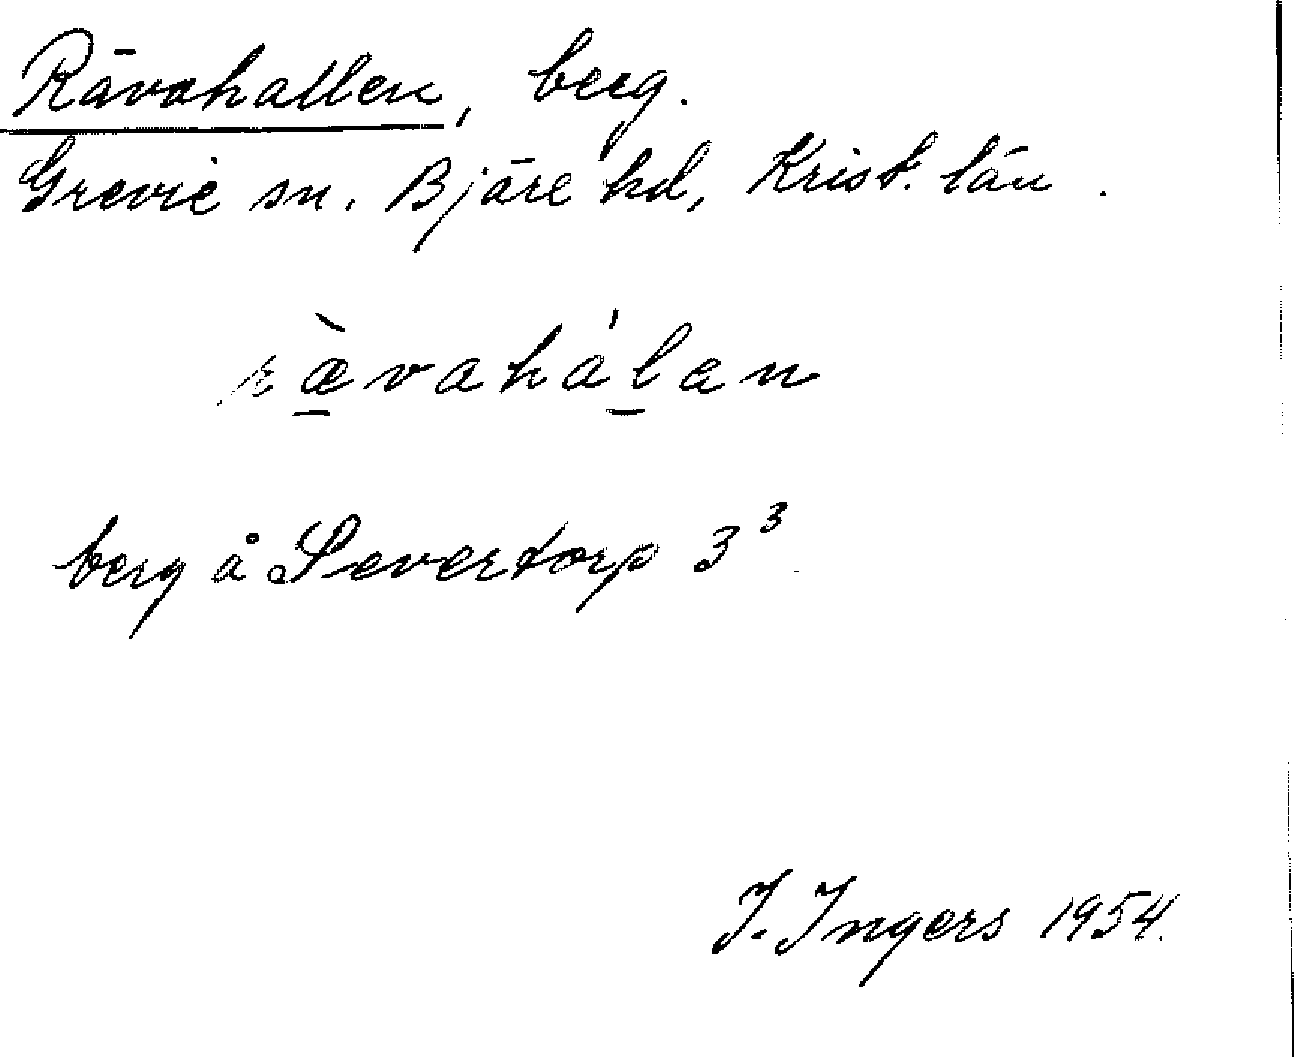 Rävahallen, berg.
Grevie sn. Bjäre hd, Krist. län.
ràvahálan
berg å Severtorp 3³
J. Ingers 1954.